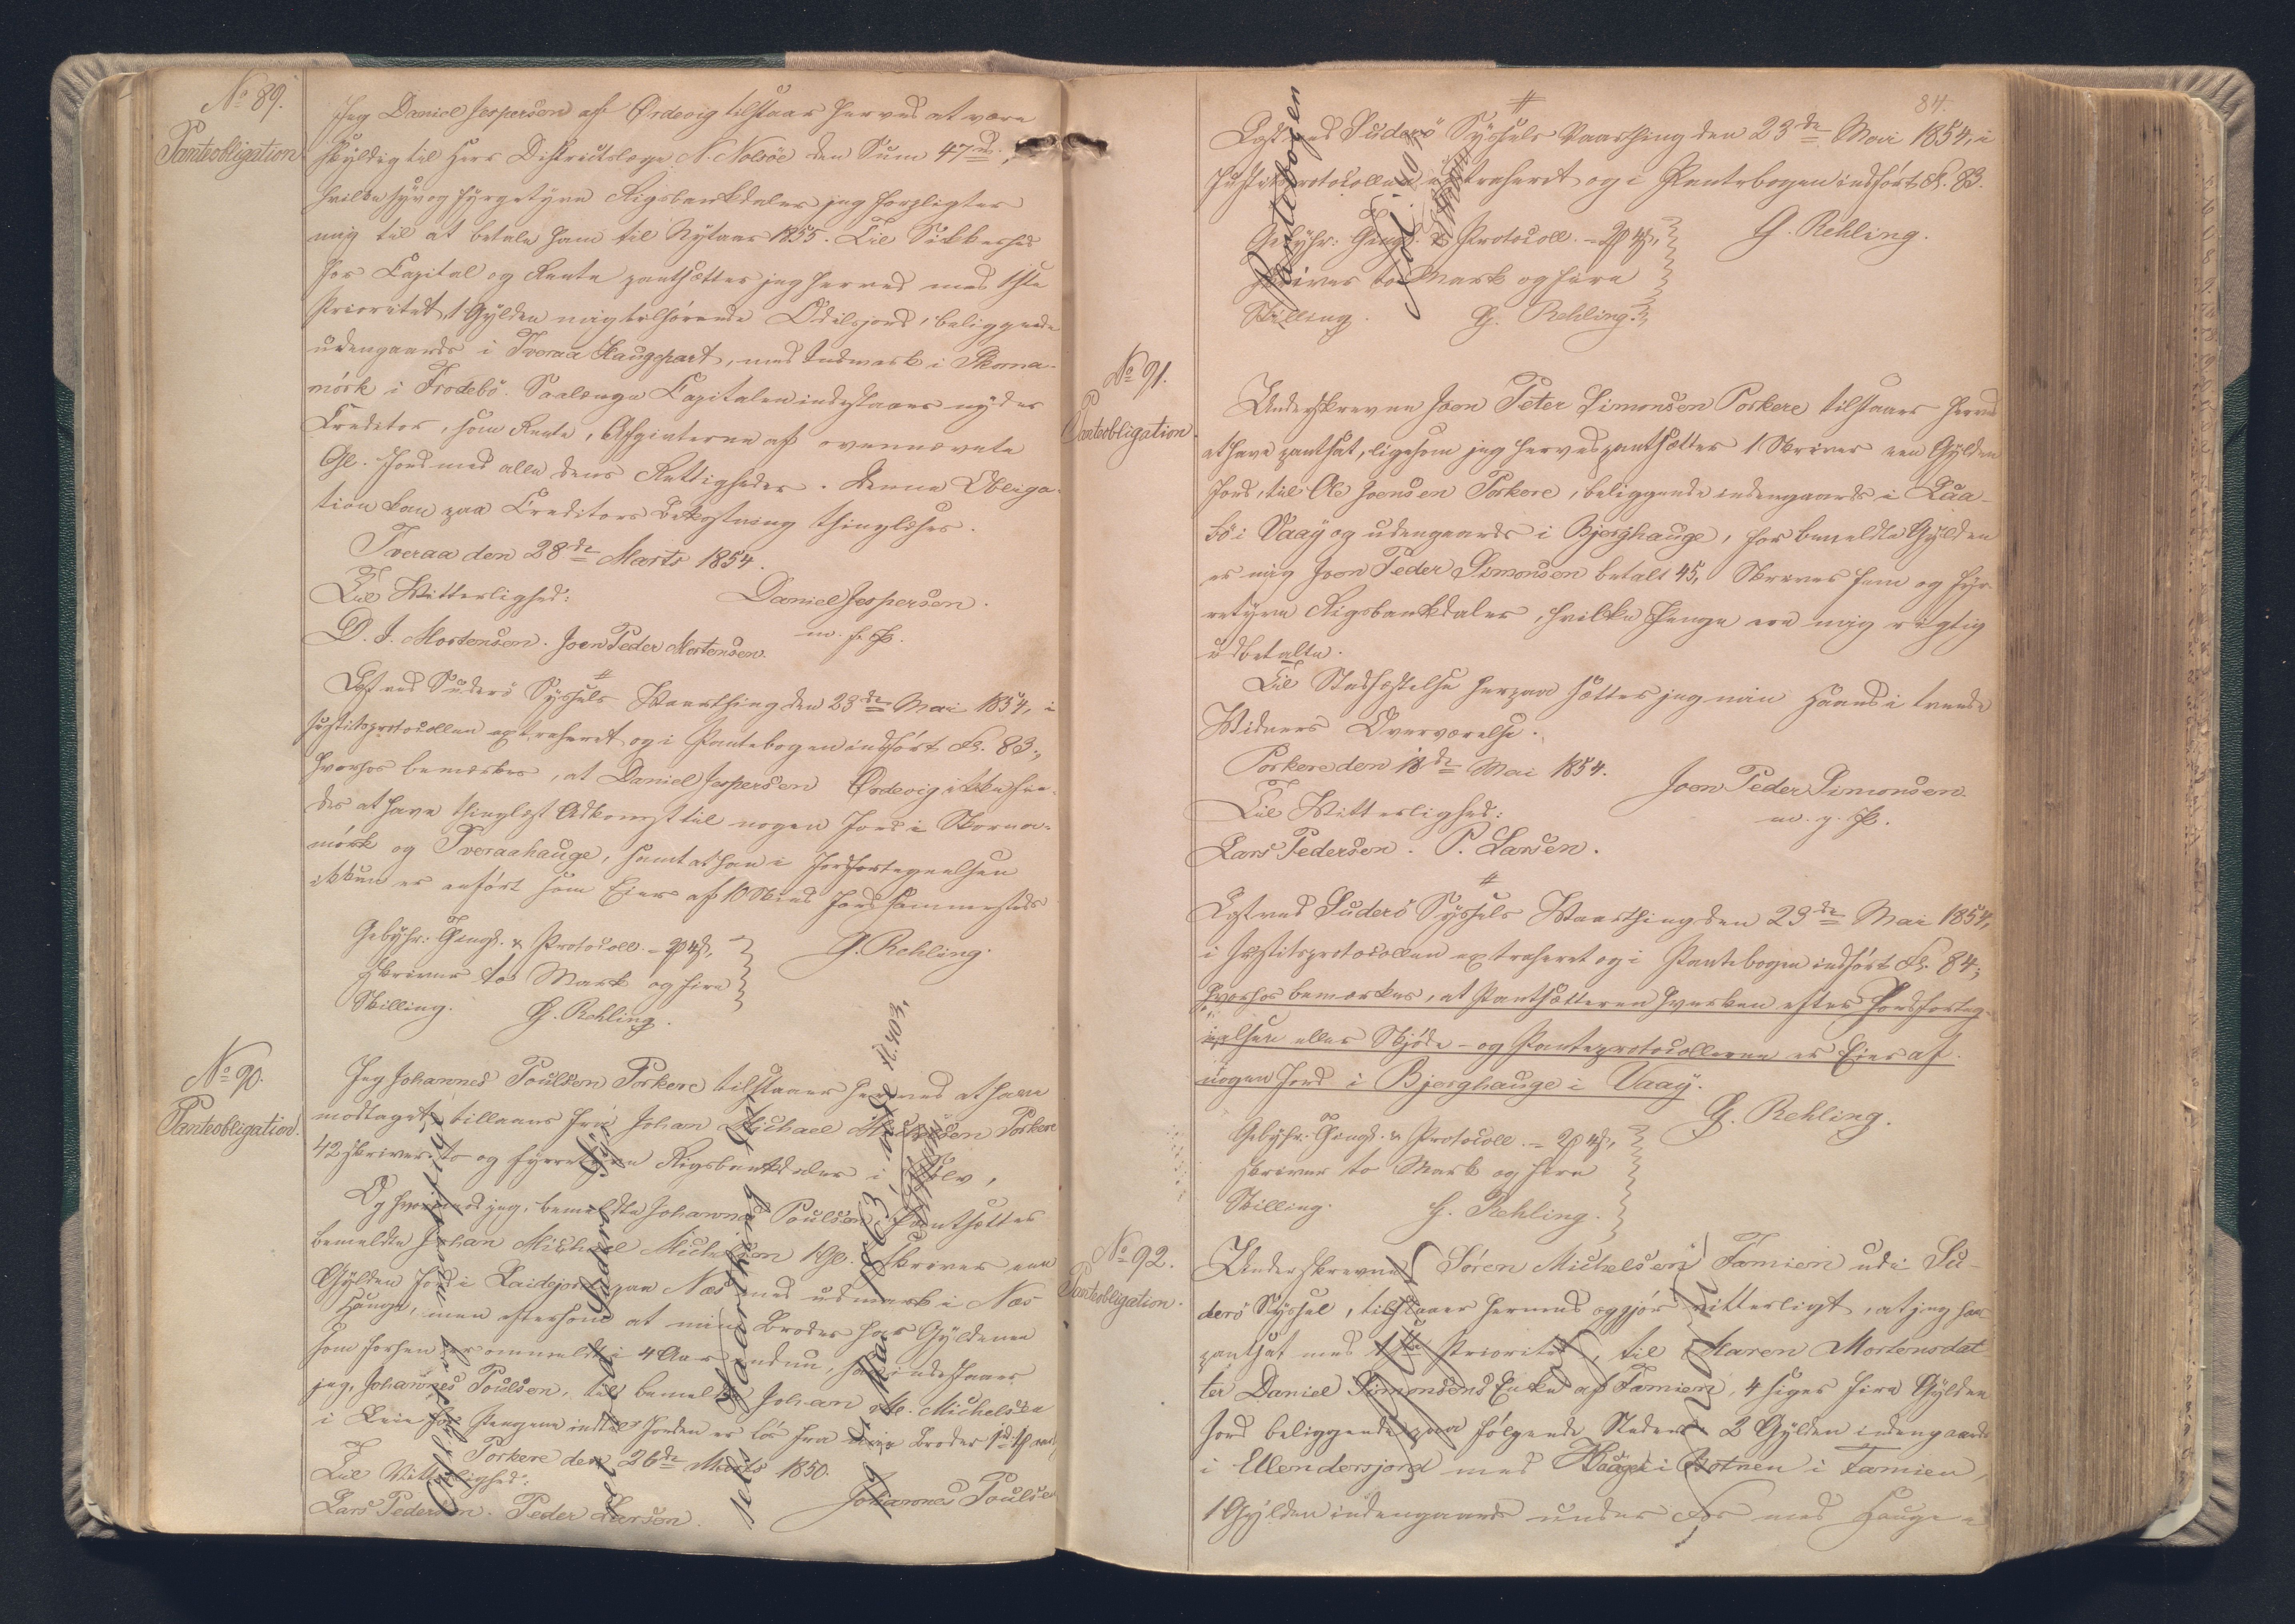 No 89.
Panteobligation
Jeg Daniel Jespersen af Ördevig tilstaaer herved at være
skyldig til Herr Districtslæge N. Nolsöe den Sum 47 rd.,
hvilke syv og fyrgetyve Rigsbankdaler jeg forpligter
mig til at betale ham til Nytaar 1855. Til Sikkerhed
for Capital og Rente pantsætter jeg herved med 1ste
Prioritet, 1 Gylden mig tilhørende Odelsjord, beliggende
udengaards i Tveraa Haugepart, med Indmark i Skorna-
mörk i Frodebö. Saalænge Capitalen indestaaer nyder
Creditor, som Rente, Afgivterne af ovennævnte
Gl. Jord med alle dens Rettigheder. Denne Obliga-
tion kan paa Creditors Bekostning thinglæses.
Tveraa den 28de Marts 1854.
Til Vitterlighed: Daniel Jespersen.
D. J. Mortensen. Joen Peder Mortensen. m. f. P.
Læst ved Suderö Syssels Vaarthing den 23de Mai 1854, i
Justitsprotocollen extraheret og i Pantebogen indført Fl. 83.,
hvorhos bemærkes, at Daniel Jespersen Ördevig ikke fin-
des at have thinglæst Adkomst til nogen Jord i Skorna-
mörk og Tveraahauge, samt at han i Jordfortegnelsen
ikkun er anført som Eier af 10 Skind Jord sammesteds
Gebyhr: Gingl. & Protocoll. = 2 mk 4 s,
skriver to Mark og fire
Skilling. G. Rehling.
G. Rehling.
No 90.
Panteobligation.
Jeg Johannes Poulsen Porkere tilstaaer herved at have
modtaget tillaans fra Johan Michael Michelsen Porkere
42 skriver to og fyrretyve Rigsbankdaler i Sölv,
Og hvorimod jeg, bemeldte Johannes Poulsen, Pantsætter
bemeldte Johan Michael Michelsen 1 Gl. skriver een
Gylden Jord i Laidejord paa Næs med udmark i Næs
Hauge, men eftersom at min Broder har Gyldenen
som forhen er ommeldt i 4 Aar endnu, saa indestaaer
jeg, Johannes Poulsen, til bemeldte Johan M. Michelsen
i Leie for Pengene indtil Jorden er lös fra min Broder
Porkere den 26de Marts 1850.
Til Vitterlighed: Johannes Poulsen
Lars Pedersen. Peder Larsen.
84.
Læst ved Suderö Syssels Vaarthing den 23de Mai 1854, i
Justitsprotocollen extraheret og i Pantebogen indført Fl. 83.
Gebyhr: Gingl. & Protocoll. = 2 mk 4 s,
skriver to Mark og fire
Skilling. G. Rehling.
G. Rehling.
Pantebogen
Fol. 403
No 91.
Panteobligation
Underskrevne Joen Peter Simonsen Porkere tilstaaer herved
at have pantsat, ligesom jeg herved pantsætter 1 Skriver een Gylden
Jord, til Ole Joensen Porkere, beliggende indengaards i Laa-
bö i Vaaÿ og udengaards i Bjerghauge, for bemeldte Gylden
er mig Joen Peder Simonsen betalt 45, Skriver fem og fyr-
retyve Rigsbankdaler, hvilke Penge ere mig rigtig
udbetalte.
Til Stadfæstelse herpaa sætter jeg min Haand i tvende
Vidners Overværelse.
Porkere den 18de Mai 1854. Joen Peder Simonsen
Til Vitterlighed: m. p. P.
Lars Pedersen. P. Larsen.
Læst ved Suderö Syssels Vaarthing den 23de Mai 1854,
i Justitsprotocollen extraheret og i Pantebogen indført Fl. 84;
hvorhos bemærkes, at Pantsætteren hverken efter Jordforteg-
nelsen eller Skjöde- og Panteprotocollerne er Eier af
nogen Jord i Bjerghauge i Vaaÿ.
G. Rehling.
Gebyhr: Gingl. & Protocoll. = 2 mk 4 s,
skriver to Mark og fire
Skilling. G. Rehling.
No 92.
Panteobligation.
Underskrevne Sören Michelsen Famien udi Su-
derö Syssel, tilstaaer herved og gjör vitterligt, at jeg har
pantsat med 1ste Prioritet, til Maren Mortensdat-
ter Daniel Simonsens Enke af Famien, 4 siger fire Gylden
Jord beliggende paa følgende Steder: 2 Gylden indengaards
i Ellendersjord med Hauge i Botnen i Famien,
1 Gylden indengaards under Fos med Hauge i